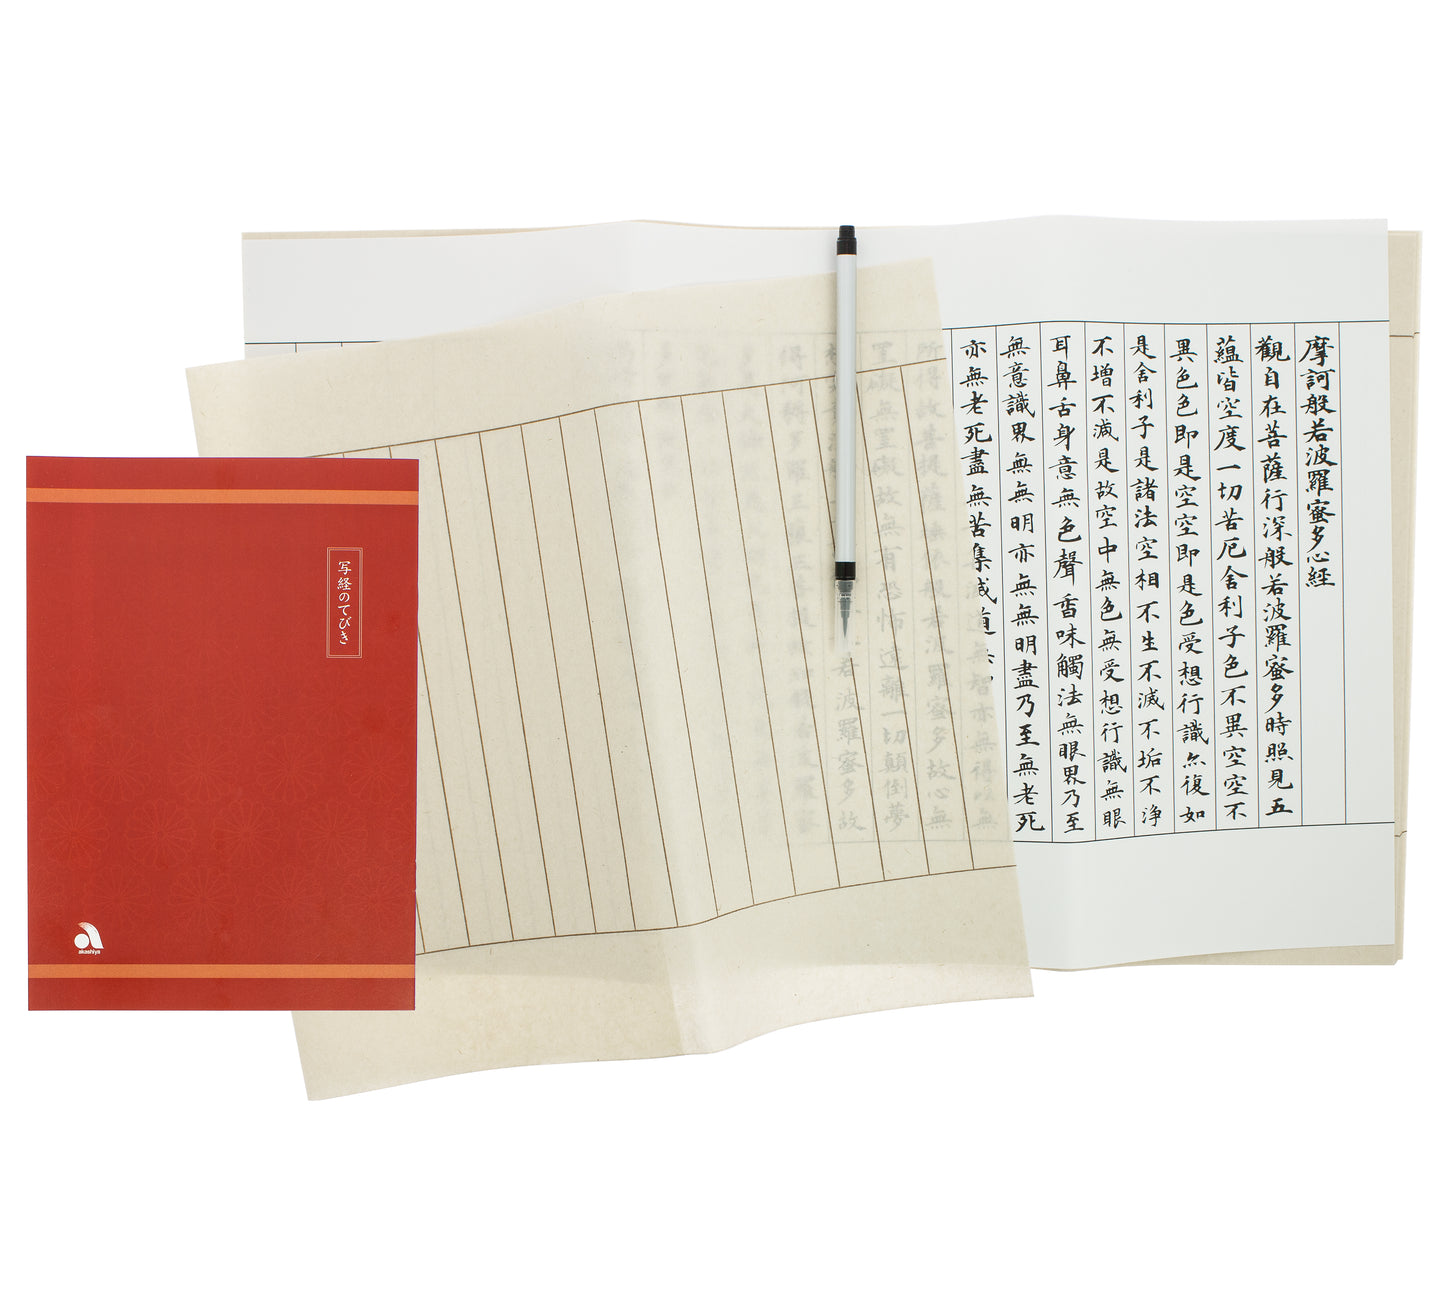 摩訶般若波羅蜜多心経
觀自在菩薩行深般若波羅蜜多時照見五
蘊皆空度一切苦厄舍利子色不異空空不
異色色即是空空即是色受想行識亦復如
是舍利子是諸法空相不生不滅不垢不浄
不増不減是故空中無色無受想行識無眼
耳鼻舌身意無色聲香味觸法無眼界乃至
無意識界無無明亦無無明盡乃至無老死
亦無老死盡無苦集滅道無智亦無得以無
所得故菩提薩埵依般若波羅蜜多故心無
罣礙無罣礙故無有恐怖遠離一切顛倒夢
若波羅蜜多故
得阿耨多羅三藐三菩提故知般若波羅蜜
写経のてびき
akashiya